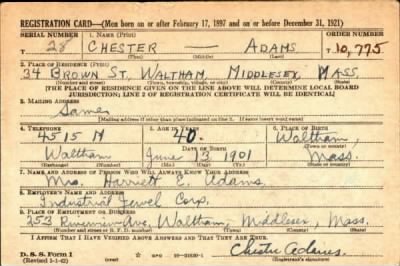 REGISTRATION CARD—(Men born on or after February 17, 1897 and on or before December 31, 1921)
SERIAL NUMBER 1. NAME (Print) ORDER NUMBER
T 28 CHESTER — ADAMS T10,775
(First) (Middle) (Last)
2. PLACE OF RESIDENCE (Print)
34 BROWN ST. WALTHAM, MIDDLESEX, MASS.
(Number and street) (Town, township, village, or city) (County) (State)
[THE PLACE OF RESIDENCE GIVEN ON THE LINE ABOVE WILL DETERMINE LOCAL BOARD
JURISDICTION; LINE 2 OF REGISTRATION CERTIFICATE WILL BE IDENTICAL]
3. MAILING ADDRESS
Same
[Mailing address if other than place indicated on line 2. If same insert word same]
4. TELEPHONE 5. AGE IN YEARS 6. PLACE OF BIRTH
4515 M 40. Waltham,
DATE OF BIRTH (Town or county)
Waltham June 13 1901 Mass.
(Exchange) (Number) (Mo.) (Day) (Yr.) (State or country)
7. NAME AND ADDRESS OF PERSON WHO WILL ALWAYS KNOW YOUR ADDRESS
Mrs. Harriett E. Adams,
8. EMPLOYER'S NAME AND ADDRESS
Industrial Jewel Corp.
9. PLACE OF EMPLOYMENT OR BUSINESS
253 Ave. Waltham, Middlesex, Mass.
(Number and street or R. F. D. number) (Town) (County) (State)
I AFFIRM THAT I HAVE VERIFIED ABOVE ANSWERS AND THAT THEY ARE TRUE.
D. S. S. Form 1
(Revised 1-1-42) GPO Chester Adams